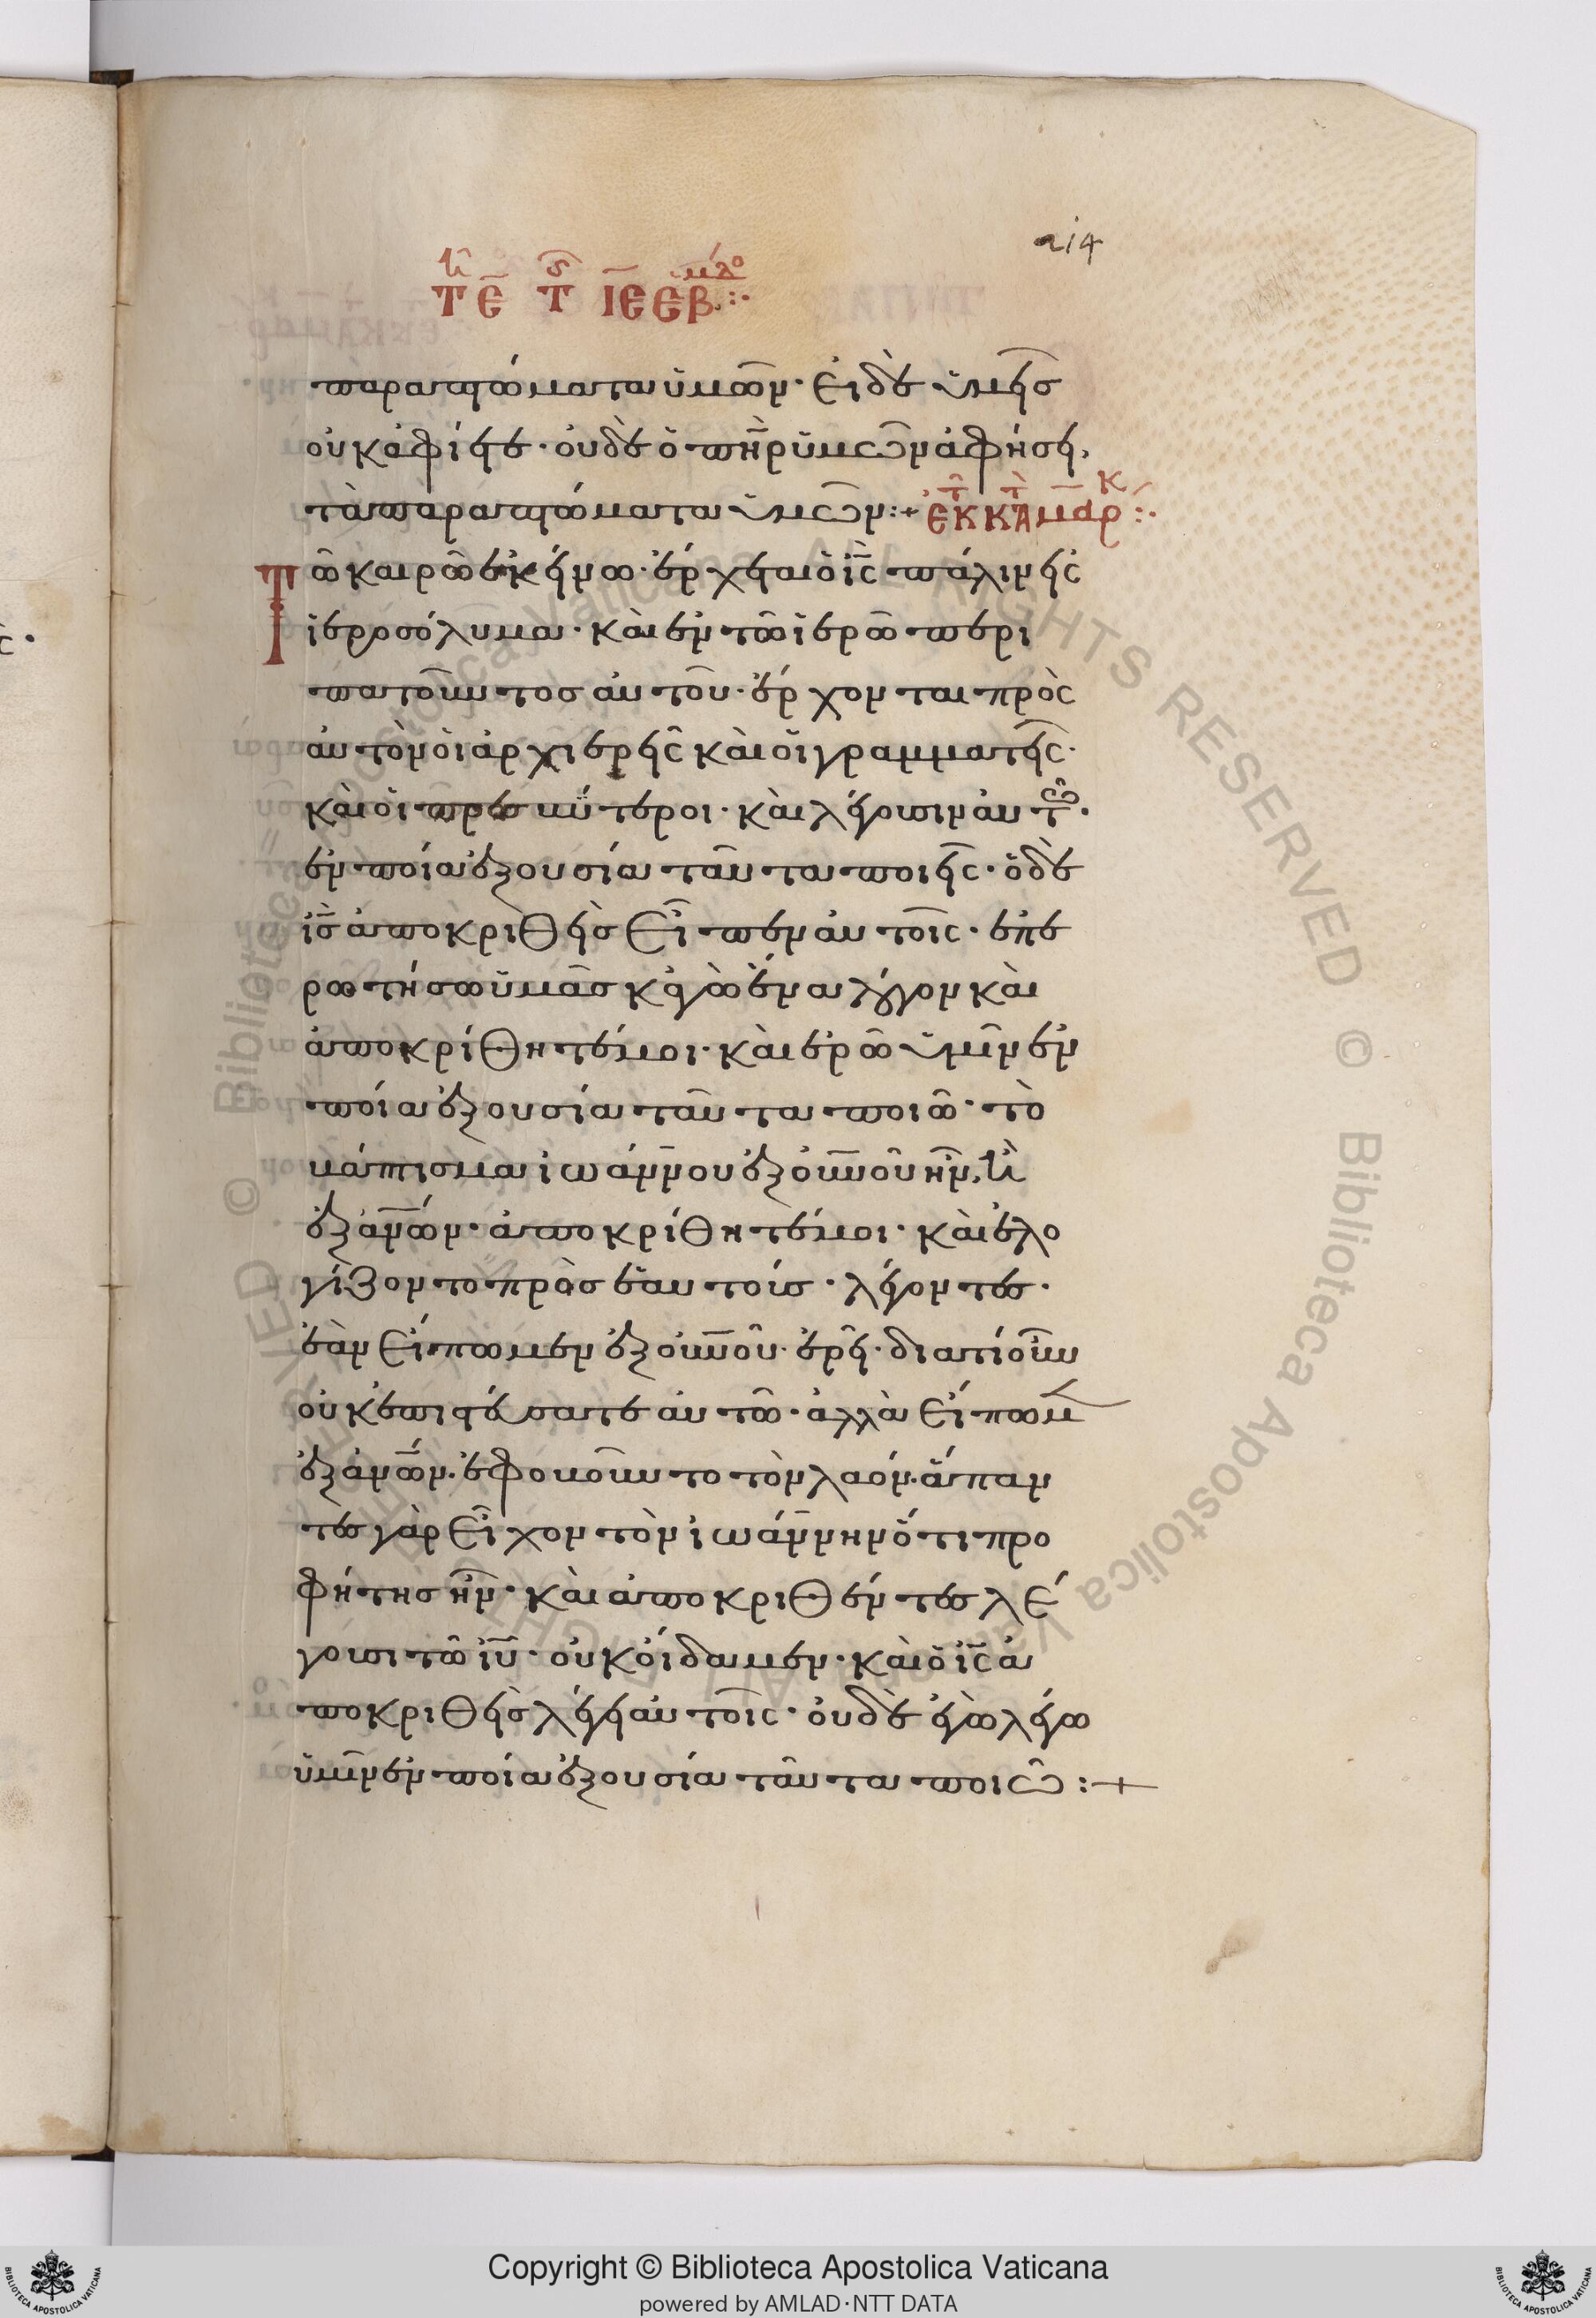 214
Τῇ ε̅ τῆς ι̅ε̅ ἑβδομάδο :·
παραπτώματα ὑμῶν· Εἰ δὲ ὑμεῖσ
οὐκ ἀφίετε· οὐδὲ ὁ πη̅ρ ὑμῶν ἀφήσει,
τὰ παραπτώματα ὑμῶν:+ ἐκ τ κτ Μαρκ:·
Τῶ καιρῶ ἐκείνω· ἔρχεται ὁ ι̅ς̅ πάλιν εἰς
ἱεροσόλυμα· καὶ ἐν τῶ ἱερῶ περι
πατοῦντοσ αὐτοῦ· ἔρχονται πρὸς
αὐτὸν οἱ ἀρχιερεῖς καὶ οἱ γραμματεῖς·
καὶ οἱ πρεσβύτεροι· καὶ λέγουσιν αὐτῶ·
ἐν ποία ἐξουσία ταῦτα ποιεῖς· ὁ δὲ
ι̅σ̅ ἀποκριθεὶσ Εἶπεν αὐτοῖς· ἐπε
ρωτήσω ὑμᾶσ κἀγὼ ἕνα λόγον καὶ
ἀποκρίθητέ μοι· καὶ ἐρῶ ὑμῖν ἐν
ποία ἐξουσία ταῦτα ποιῶ· τὸ
βάπτισμα ἰωάννου ἐξ οὐ̅νοῦ ἦν, ἢ
ἐξ α̅νῶν· ἀποκρίθητέ μοι· καὶ ἐλο
γίζοντο πρὸσ ἑαυτούσ· λέγοντεσ·
ἐὰν Εἴπωμεν ἐξ οὐ̅νοῦ· ἐρεῖ· διατί οὖν
οὐκ ἐπιστεύσατε αὐτῶ· ἀλλὰ Εἴπωμ
ἐξ α̅νῶν· ἐφοβοῦντο τὸν λαόν· ἅπαν
τεσ γὰρ Εἶχον τὸν ἰωάννην ὅτι προ
φήτησ ἦν· καὶ ἀποκριθέντεσ λΕ
γουσι τῶ ι̅υ̅· οὐκ οἴδαμεν· καὶ ὁ ι̅ς̅ ἀ
ποκριθεὶσ λέγει αὐτοῖς· οὐδὲ ἐγὼ λέγω
ὑμῖν ἐν ποία ἐξουσία ταῦτα ποιῶ:+
Copyright © Biblioteca Apostolica Vaticana
powered by AMLAD·NTT DATA